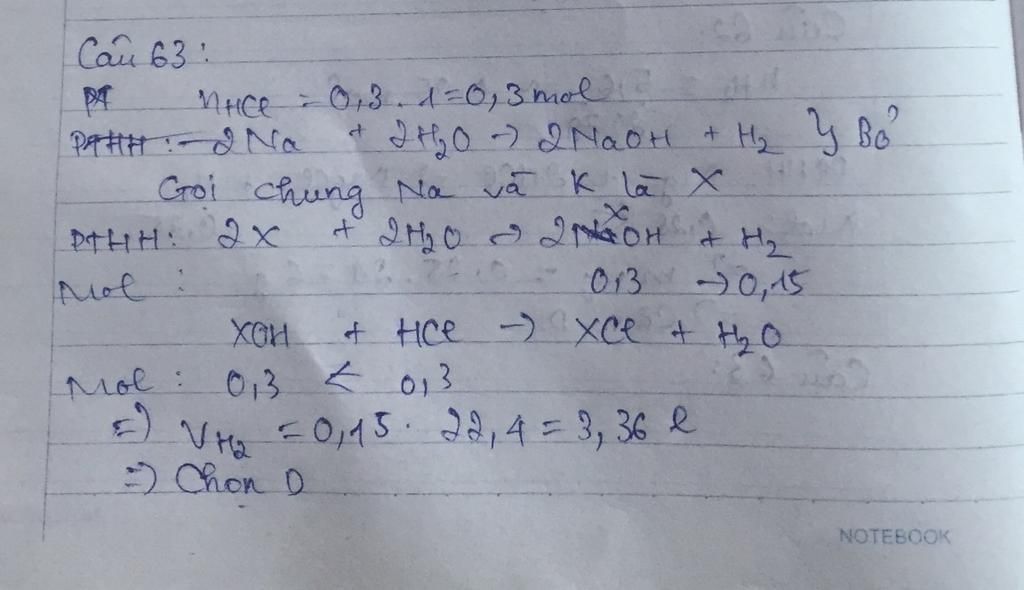 Câu 63:
PT nHCl = 0,3 . 1 = 0,3 mol
PTHH: 2Na + 2H₂O → 2NaOH + H₂ } Bỏ
Gọi chung Na và K là X
PTHH: 2X + 2H₂O → 2XOH + H₂
Mol : 0,3 → 0,15
XOH + HCl → XCl + H₂O
Mol : 0,3 < 0,3
=) VH₂ = 0,15 . 22,4 = 3,36 l
=) Chọn D
NOTEBOOK